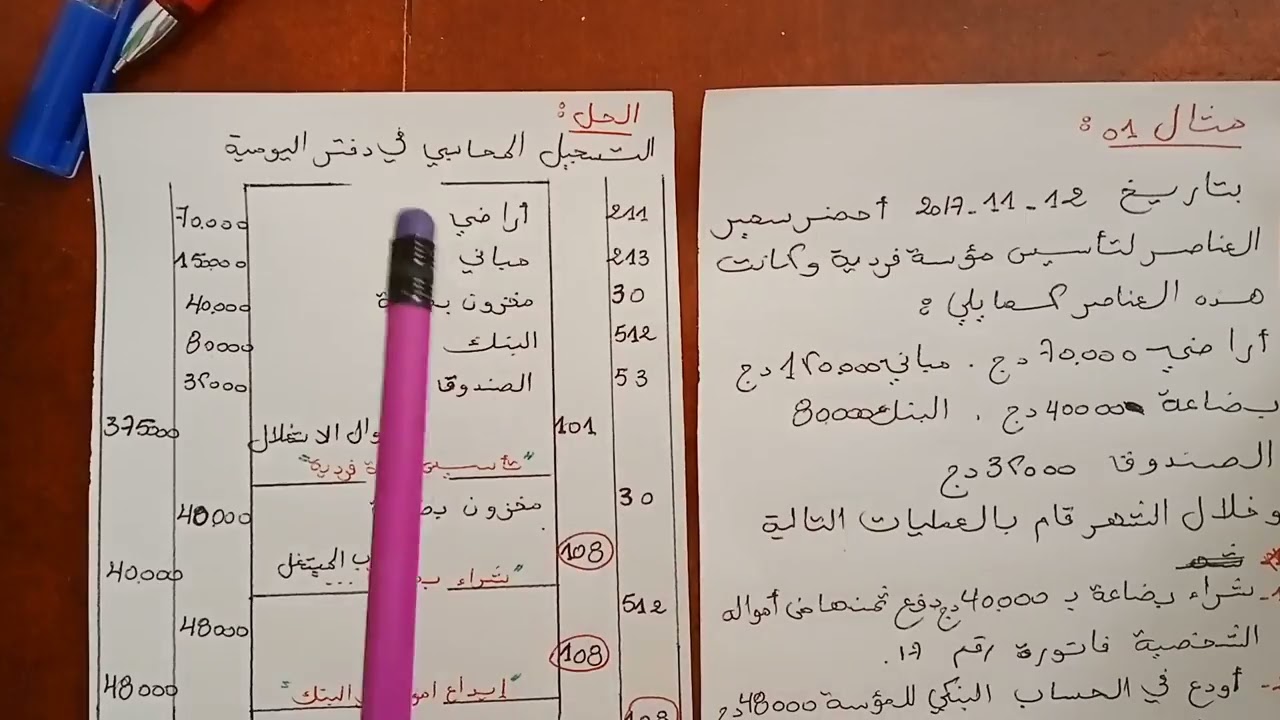 مثال 01 :
بتاريخ 12-11-2017 أحضر سمير
العناصر لتأسيس مؤسة فردية وكانت
هذه العناصر كمايلي :
أراضي 70.000 دج . مباني 150.000 دج
بضاعة 40000 دج . البنك 80000
الصندوق 35000 دج
وخلال الشهر قام بالعمليات التالية
1- شراء بضاعة بـ 40.000 دج دفع ثمنها من أمواله
الشخصية فاتورة رقم 01.
- أودع في الحساب البنكي للمؤسة 48000 دج
الحل :
التسجيل المحاسبي في دفتر اليومية
211 أراضي 70.000
213 مباني 150000
30 مخزون 40.000
512 البنك 80000
53 الصندوق 35000
101 الاستغلال 375000
"تأسيس فردية"
30 مخزون 40.000
108 المستغل 40.000
"شراء ...
512 48000
108 48000
"إيداع البنك"
108